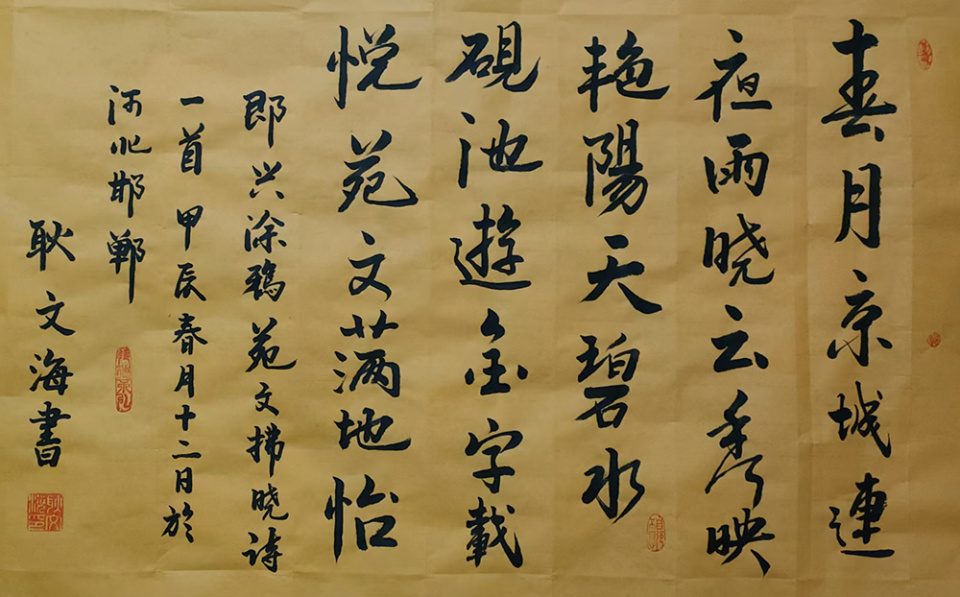 春月京城連
夜雨晓云秀映
艳陽天碧水
硯池遊金字載
悦苑文蒲地怡
即兴涂鸦苑文拂晓诗
一首 甲辰春月十二日於
河北邯郸
耿文海書